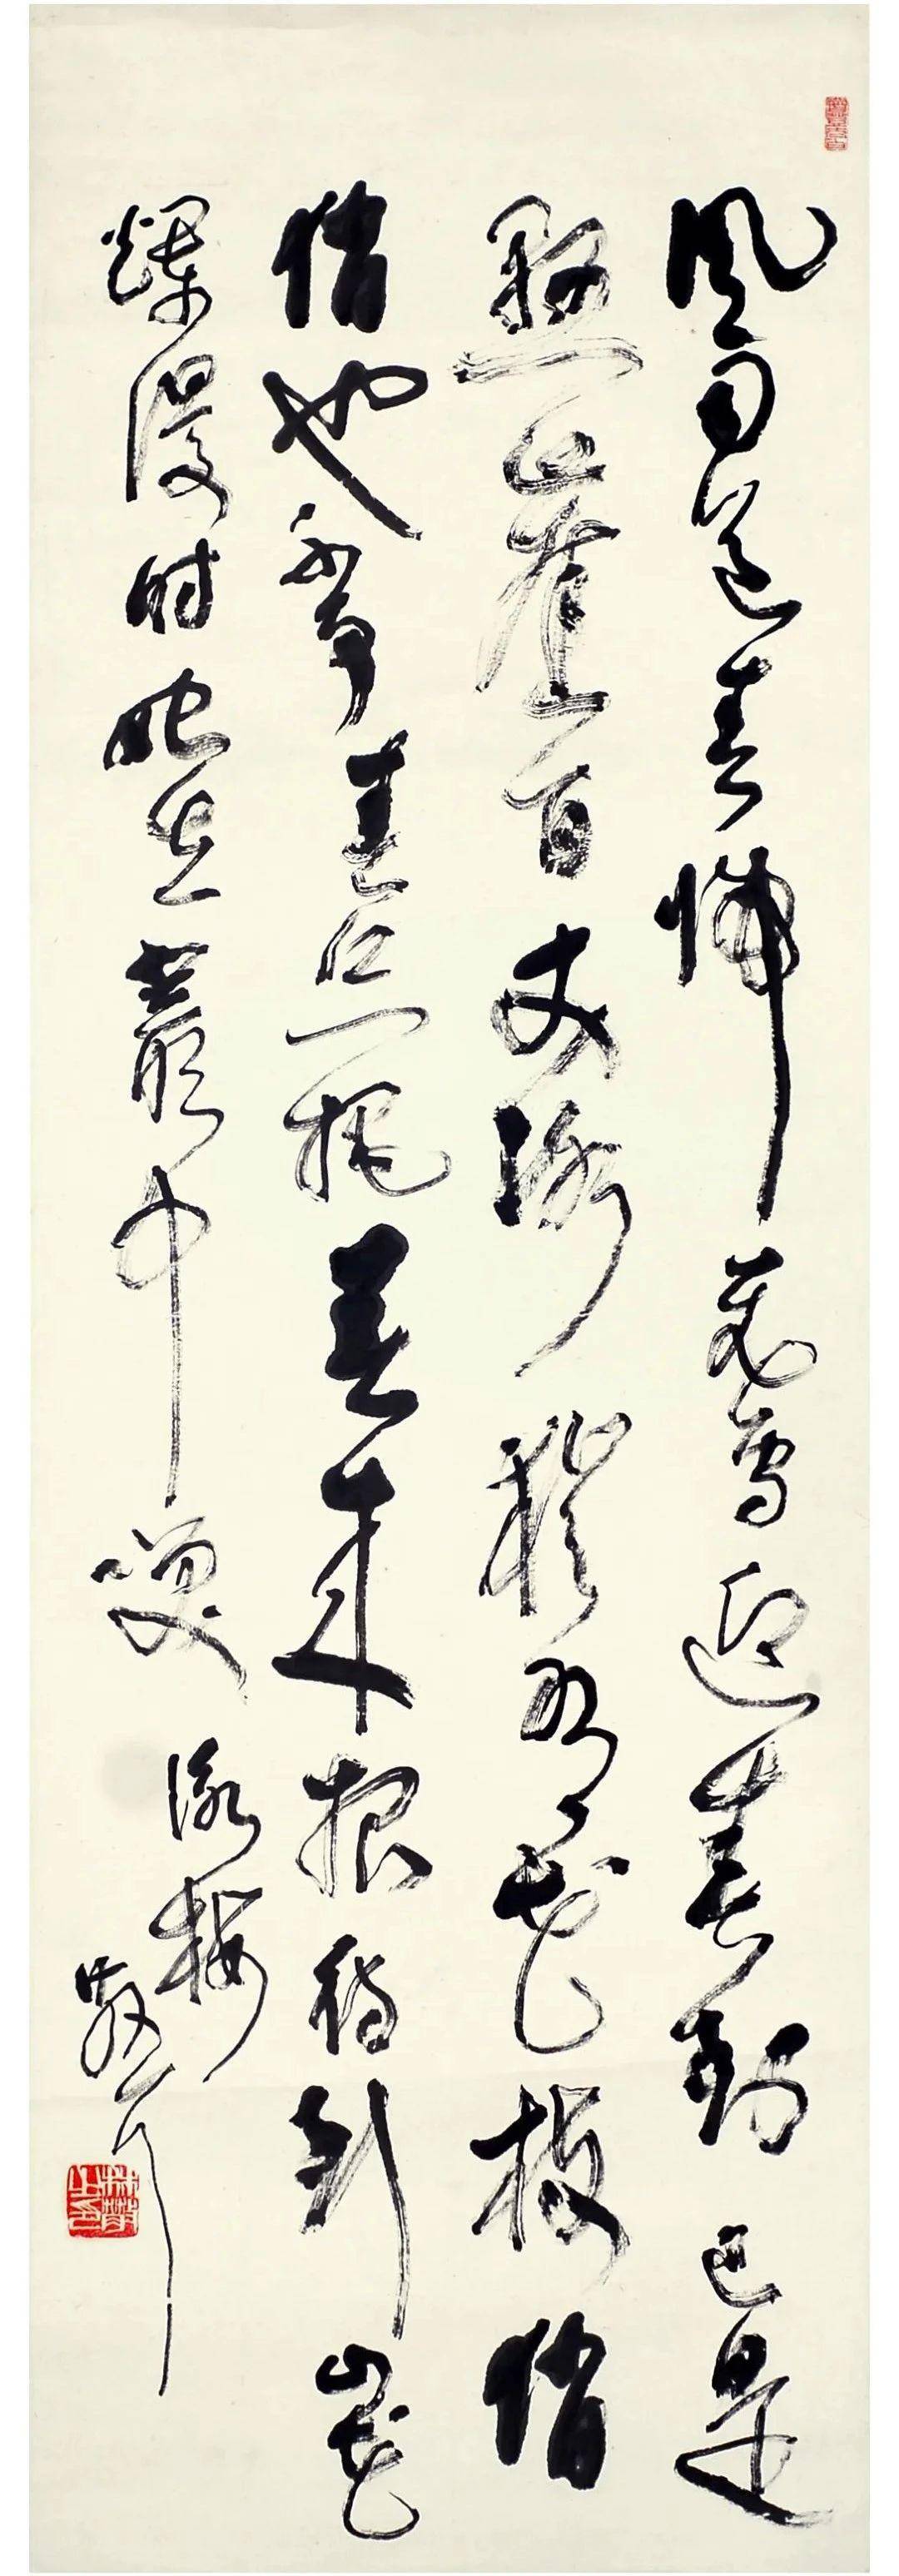 風雨送春歸飛雪迎春到已是
懸崖百丈冰猶有花枝俏
俏也不爭春只把春來報待到山花
爛漫時她在叢中笑
詠梅
散耳
林散之印